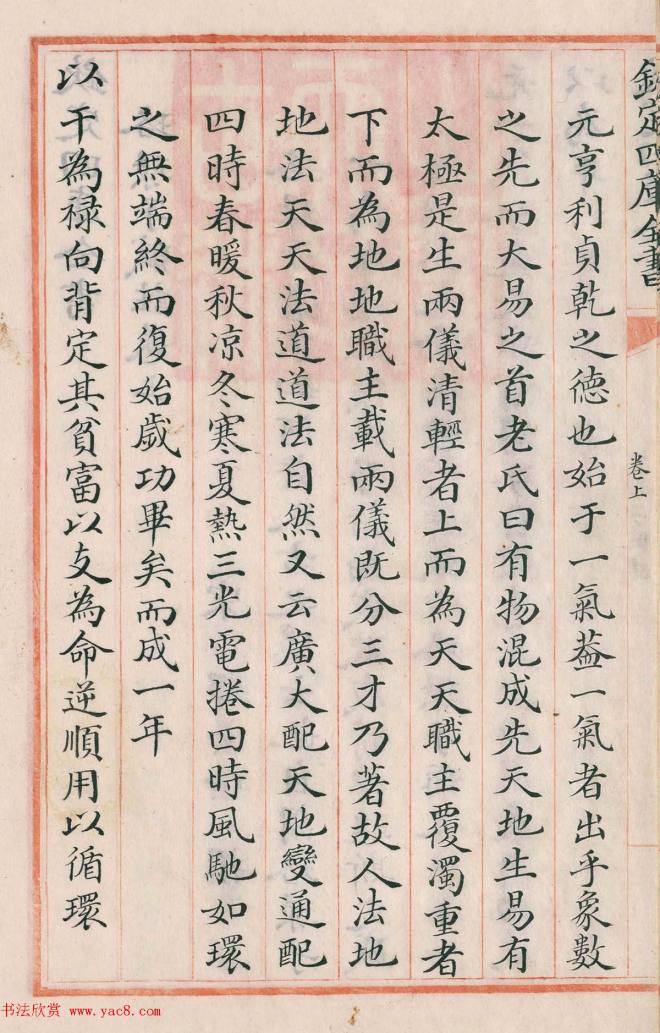 欽定四庫全書
卷上
元亨利貞乾之德也始于一氣葢一氣者出乎象數
之先而大易之首老氏曰有物混成先天地生易有
太極是生兩儀清輕者上而為天天職主覆濁重者
下而為地地職主載兩儀既分三才乃著故人法地
地法天天法道道法自然又云廣大配天地變通配
四時春暖秋凉冬寒夏熱三光電捲四時風馳如環
之無端終而復始歲功畢矣而成一年
以干為禄向背定其貧富以支為命逆順用以循環
书法欣赏 www.yac8.com